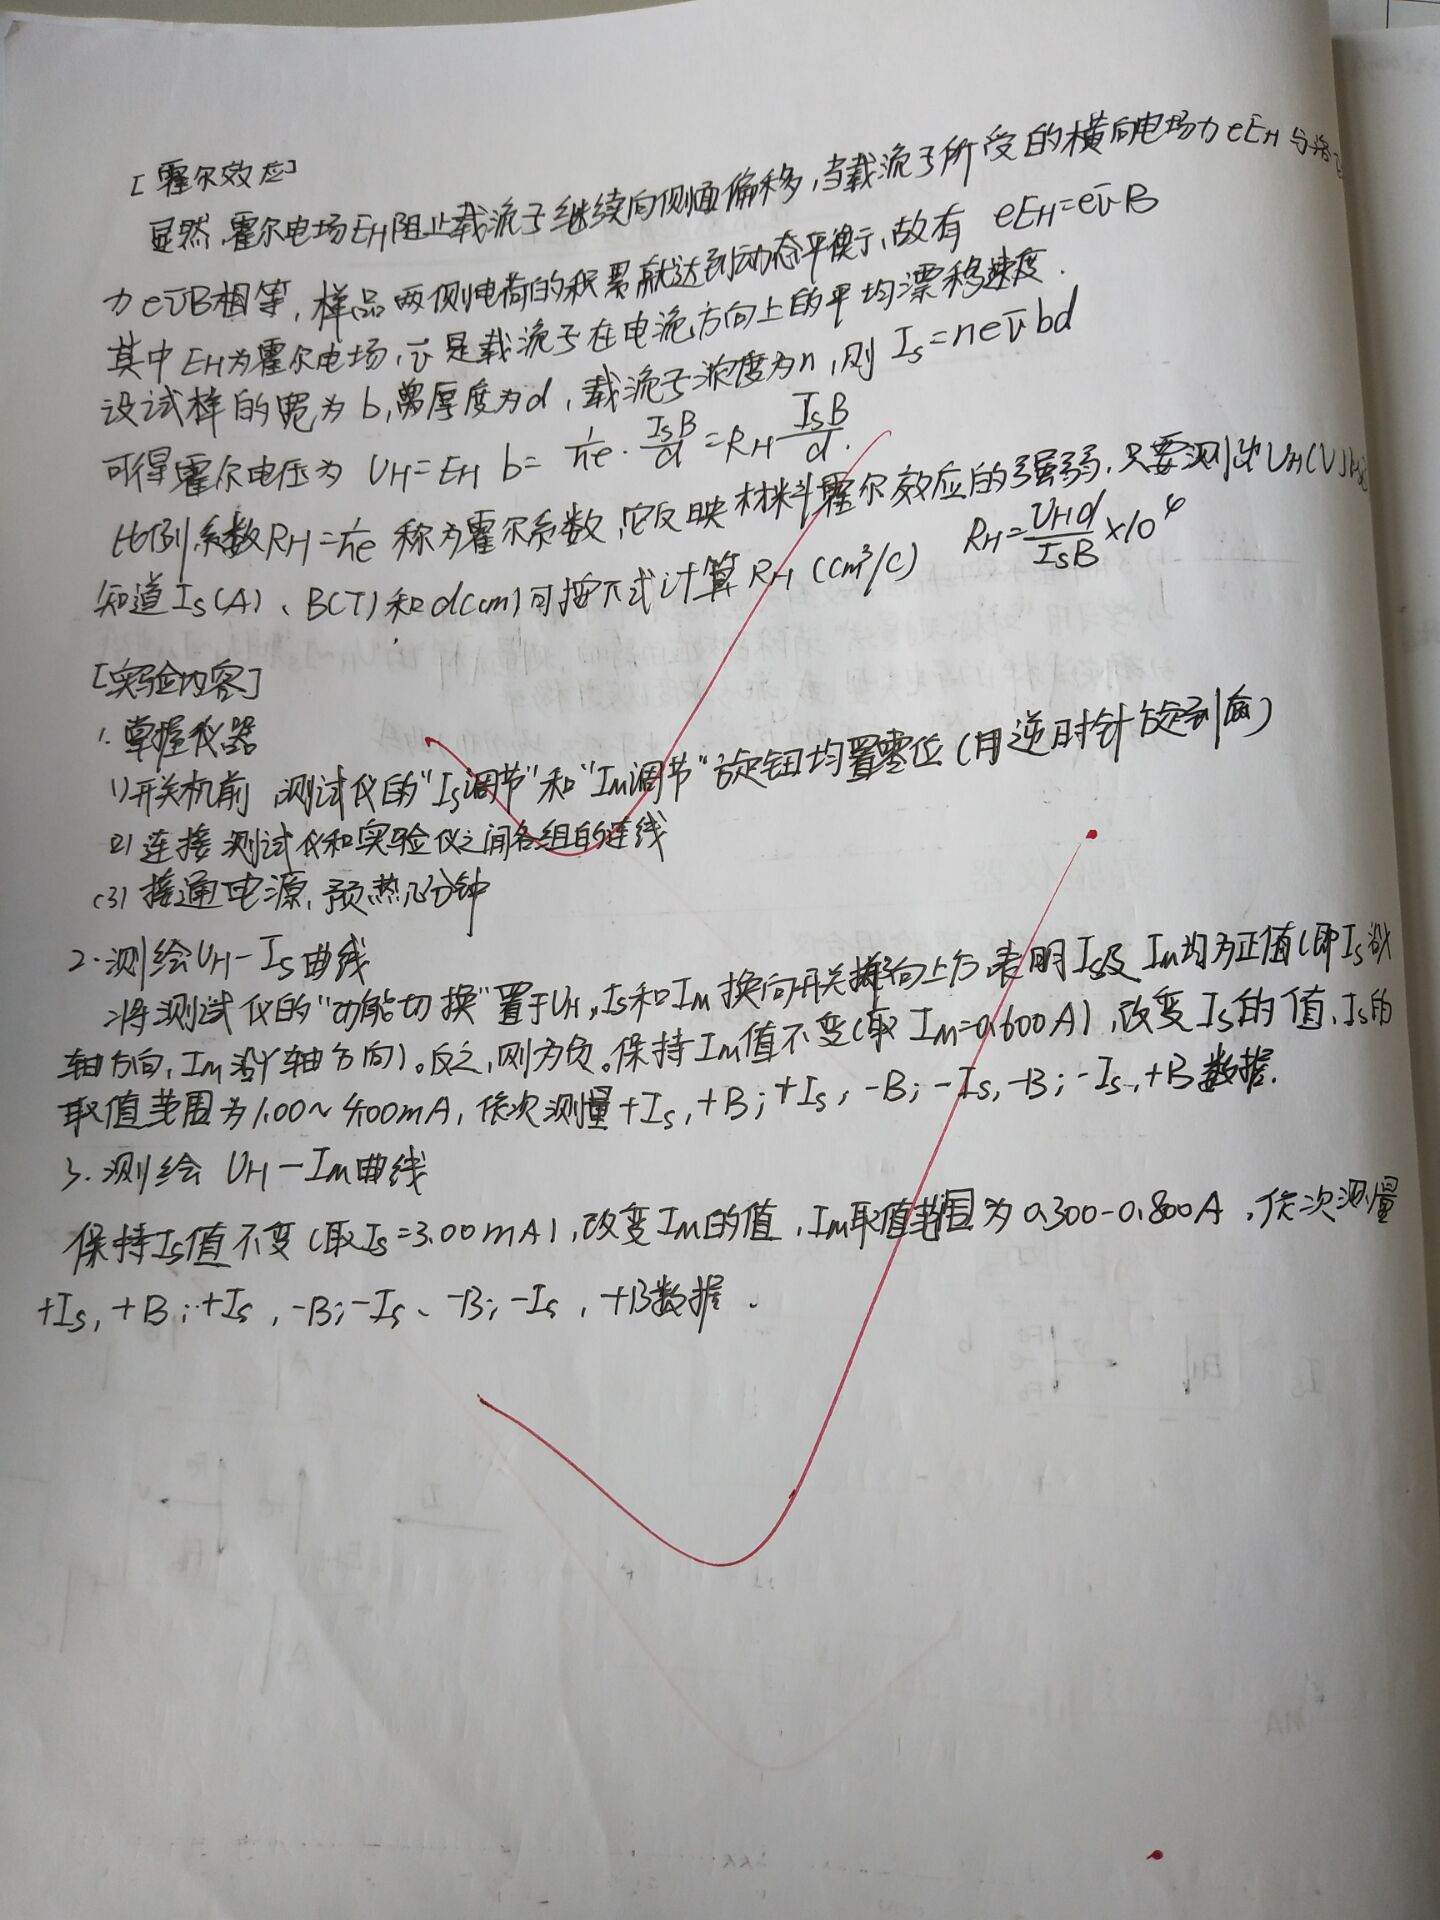 [霍尔效应]
显然,霍尔电场EH阻止载流子继续向侧面偏移,当载流子所受的横向电场力eEH与洛
力ev̄B相等,样品两侧电荷的积累就达到动态平衡,故有 eEH=ev̄B
其中EH为霍尔电场,v̄是载流子在电流方向上的平均漂移速度.
设试样的宽为b,厚度为d,载流子浓度为n,则 Is=nev̄bd
可得霍尔电压为 UH=EH b= 1/ne · IsB/d = RH IsB/d.
比例系数RH=1/ne 称为霍尔系数,它反映材料霍尔效应的强弱,只要测出UH(V)
知道Is(A)、B(T)和d(cm)可按下式计算RH(cm³/C) RH=UHd/IsB×10⁴
[实验内容]
1.掌握仪器
1)开关机前,测试仪的"Is调节"和"Im调节"旋钮均置零位(用逆时针旋到底)
2)连接测试仪和实验仪之间各组的连线
(3)接通电源,预热几分钟
2.测绘UH-Is曲线
将测试仪的"功能切换"置于UH,Is和Im换向开关掷向上方,表明Is及Im均为正值(即Is沿
轴方向,Im沿Y轴方向)。反之,则为负。保持Im值不变(取Im=0.600A),改变Is的值,Is的
取值范围为1.00~4.00mA,依次测量+Is,+B;+Is,-B;-Is,-B;-Is,+B数据.
3.测绘 UH-Im曲线
保持Is值不变(取Is=3.00mA),改变Im的值,Im取值范围为0.300-0.800A,依次测量
+Is,+B;+Is,-B;-Is、-B;-Is,+B数据.